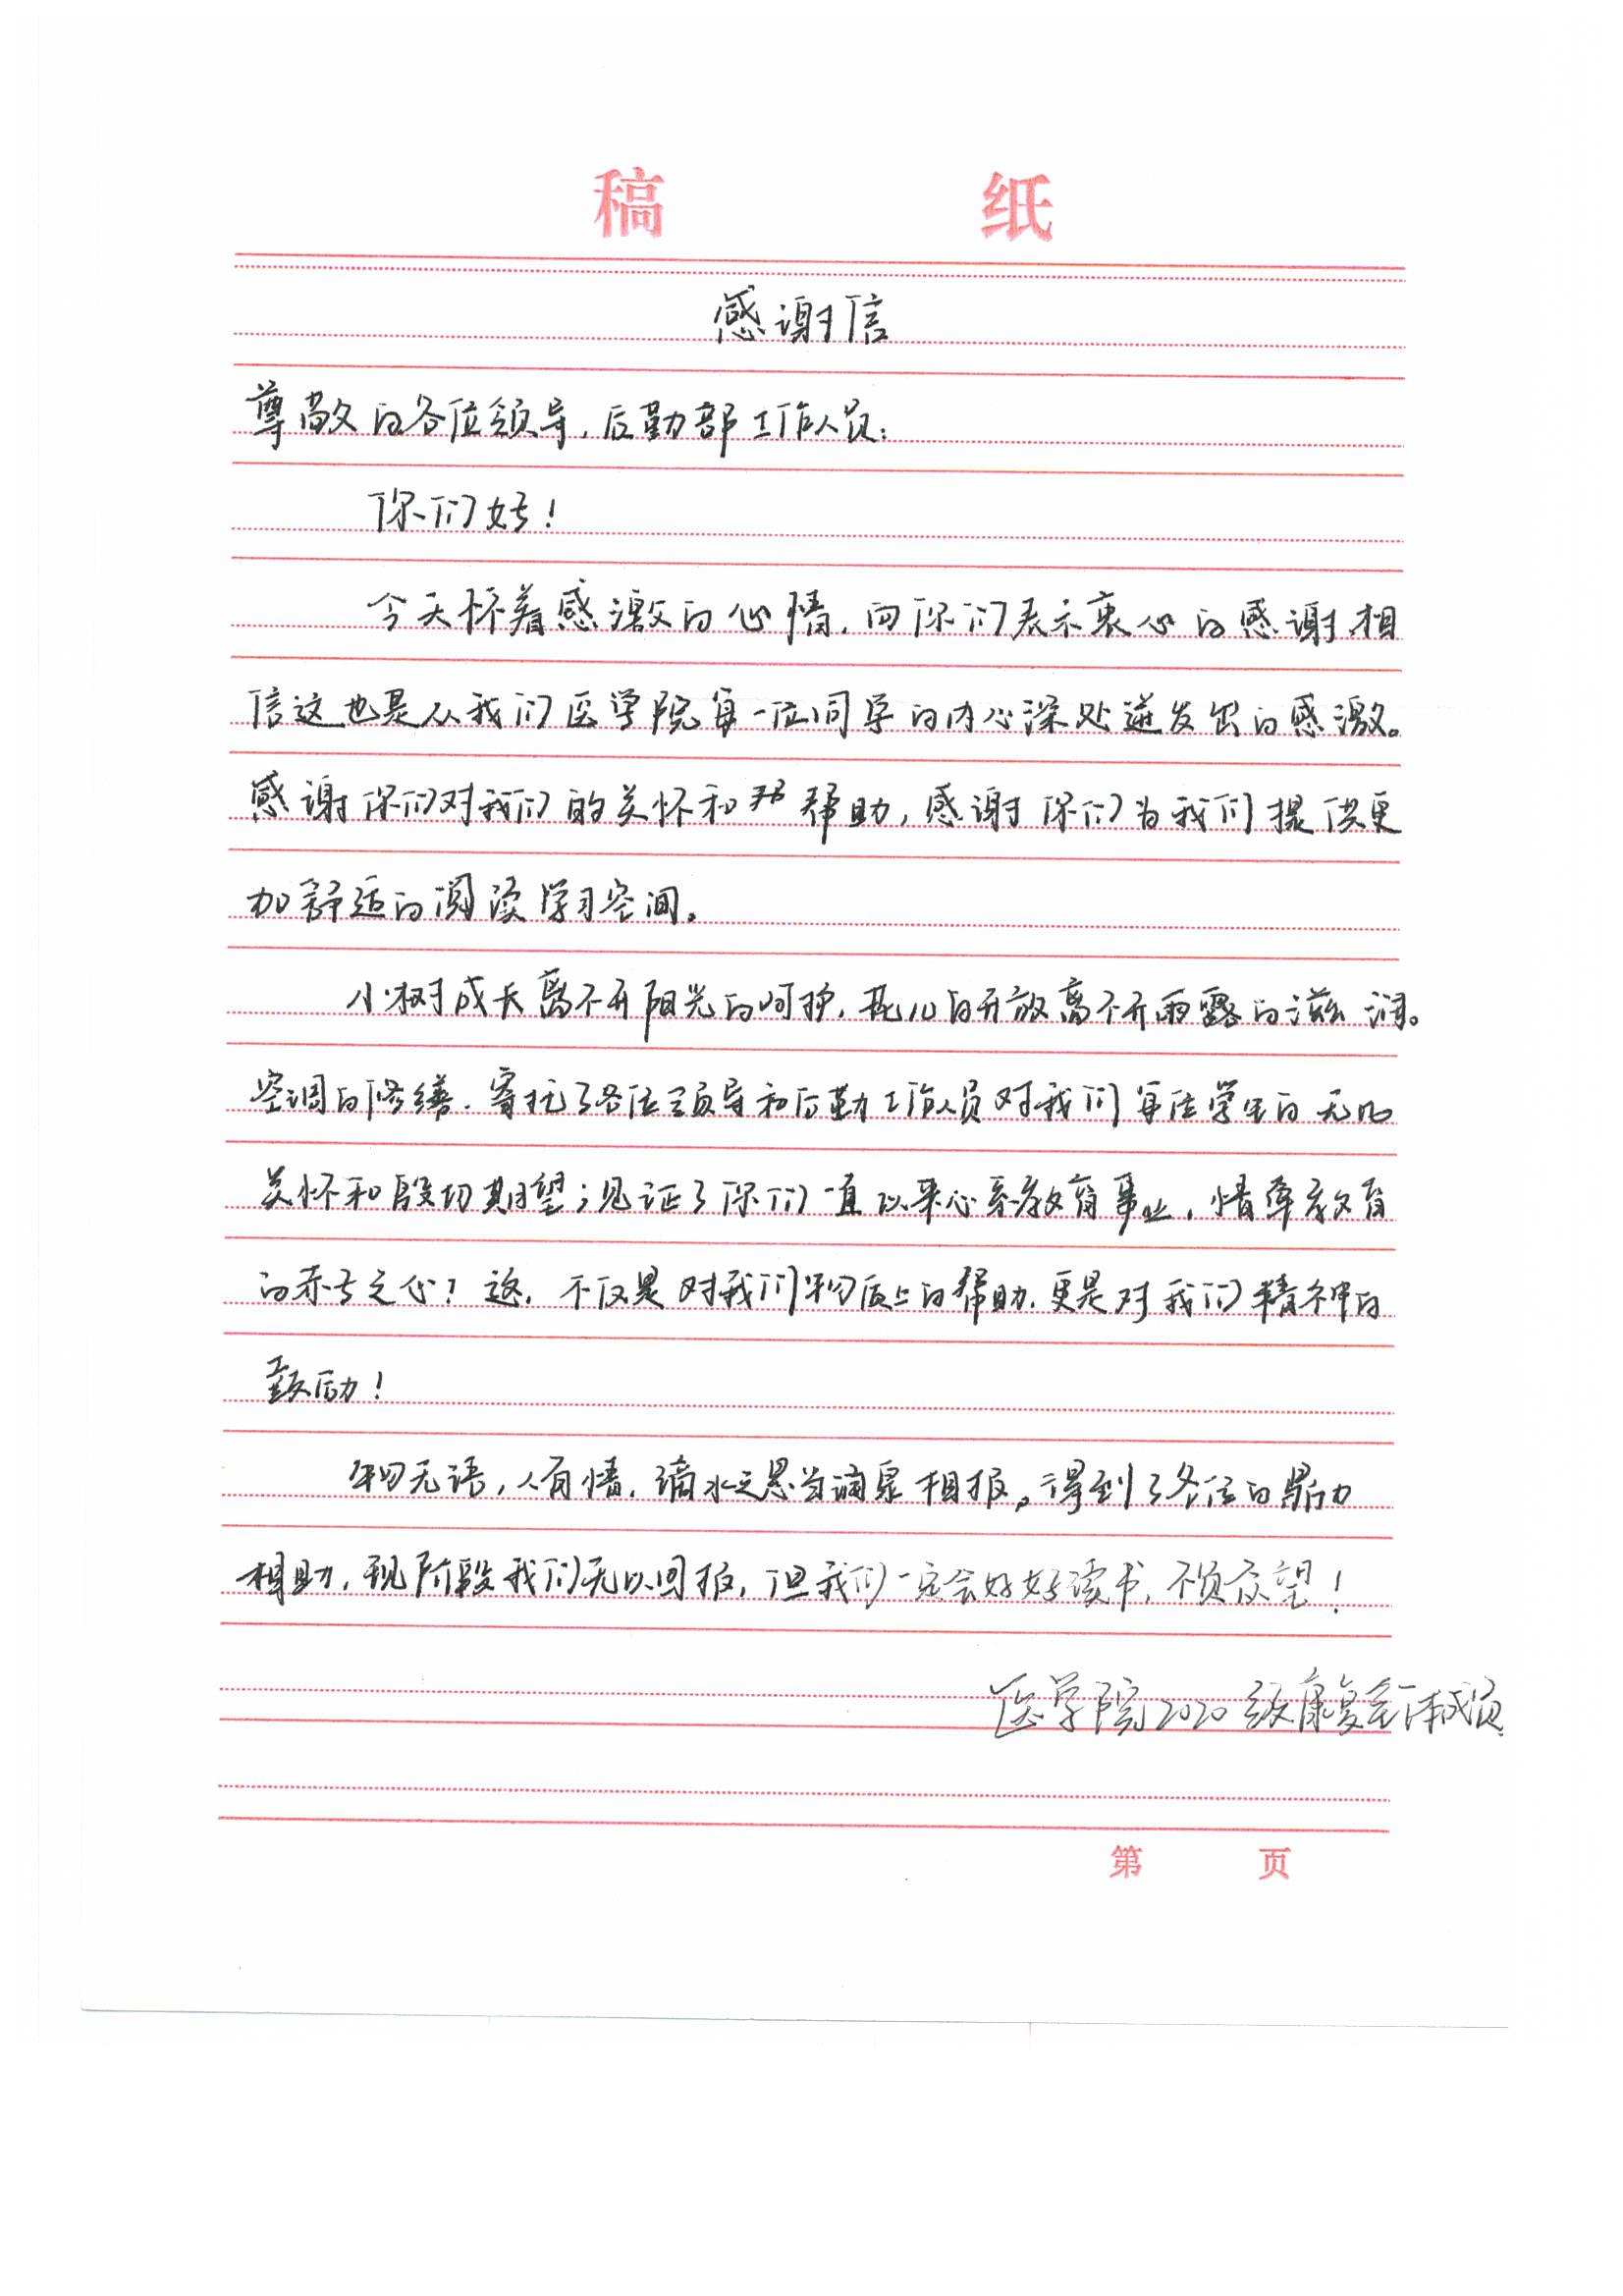 稿 纸
感谢信
尊敬的各位领导，后勤部工作人员：
你们好！
今天怀着感激的心情，向你们表示衷心的感谢，相
信这也是从我们医学院每一位同学的内心深处迸发出的感激。
感谢你们对我们的关怀和帮助，感谢你们为我们提供更
加舒适的阅读学习空间。
小树成长离不开阳光的呵护，花儿的开放离不开雨露的滋润。
空调的修缮，寄托了各位领导和后勤工作人员对我们每位学生的无比
关怀和殷切期望；见证了你们一直以来心系教育事业，情牵教育
的赤子之心！这，不仅是对我们物质上的帮助，更是对我们精神的
鼓励！
物无语，人有情，滴水之恩当涌泉相报。得到了各位的鼎力
相助，现阶段我们无以回报，但我们一定会好好读书，不负众望！
医学院2020级康复全体成员
第 页